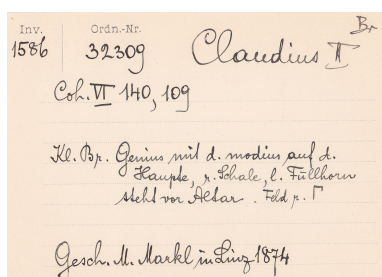 Inv. Ordn.-Nr. Br
1586 32309 Claudius II
Coh. VI 140, 109
Kl. Br. Genius mit d. modius auf d.
Haupte, r. Schale, l. Füllhorn
steht vor Altar. Feld r. Γ
Gesch. M. Markl in Linz 1874